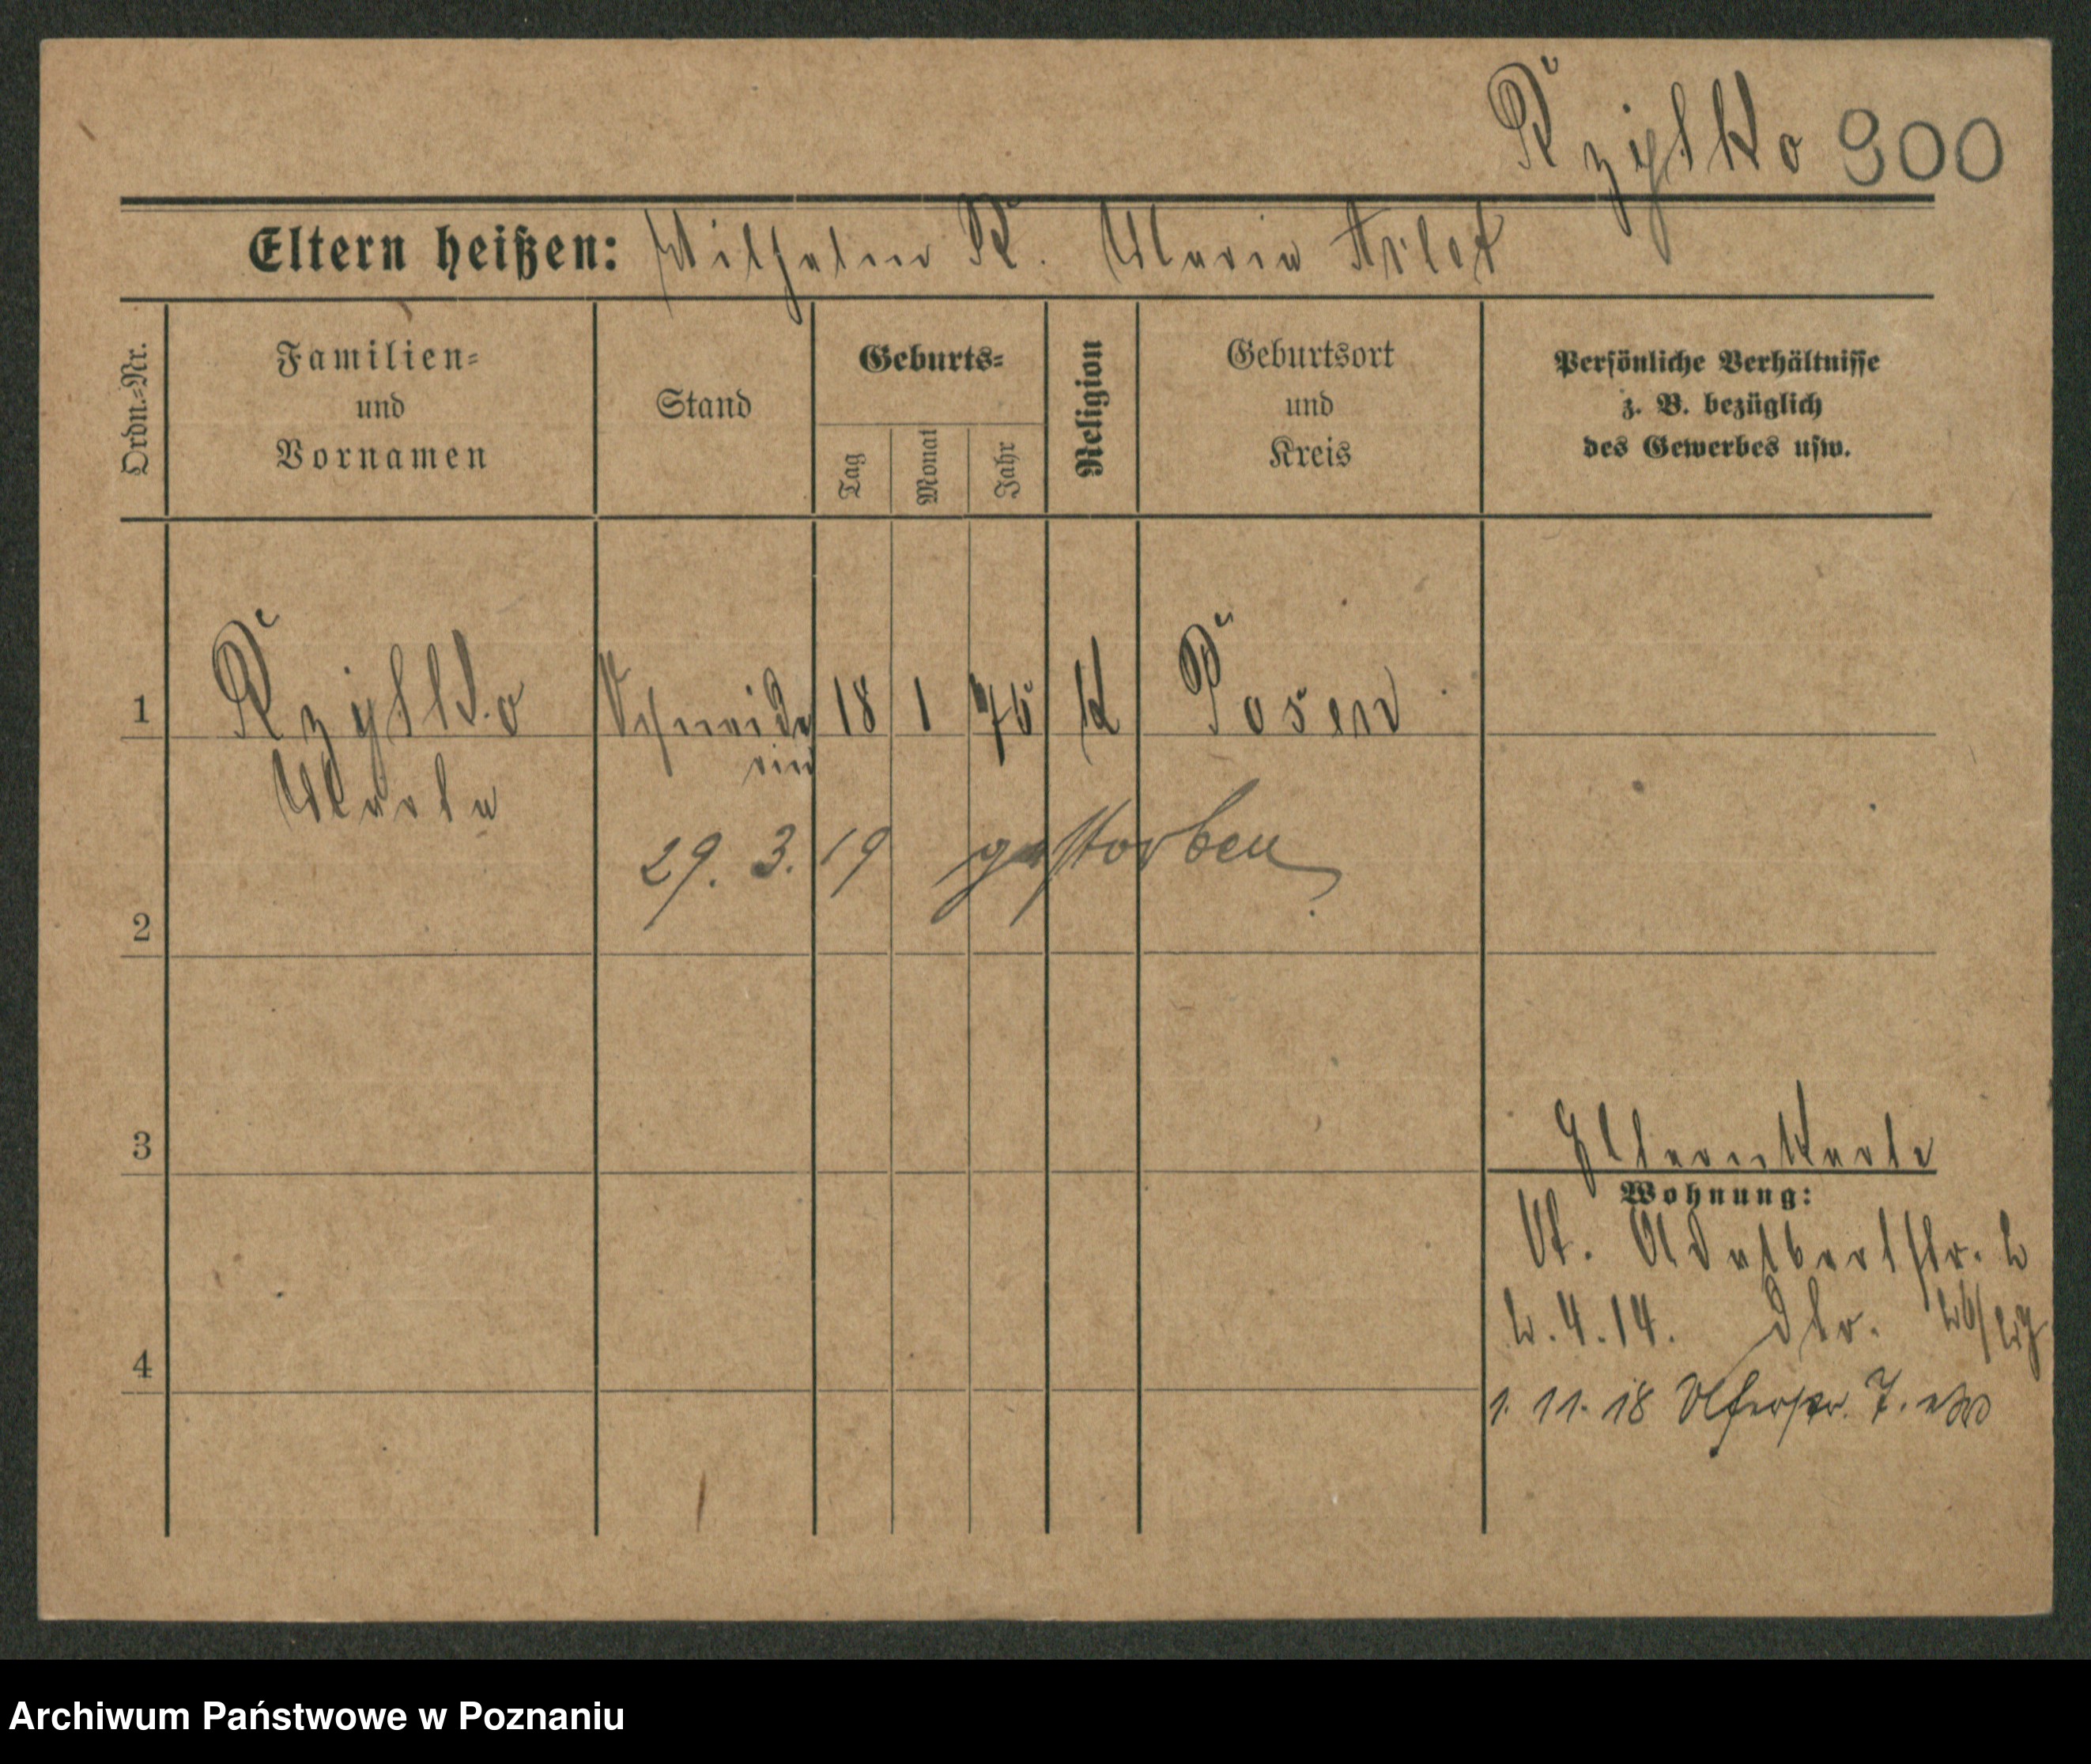 Rzytko 900
Eltern heißen: Wilhelm R. Maria Arlet
Ordn.=Nr.
Familien=
und
Vornamen
Stand
Geburts=
Tag
Monat
Jahr
Religion
Geburtsort
und
Kreis
Persönliche Verhältnisse
z. B. bezüglich
des Gewerbes usw.
1 Rzytko Schneide 18 1 75 k Posen
rin
Marta
29. 3. 19 gestorben
2
3
Elternkarte
Wohnung:
St. Adalbertstr. 2
2. 4. 14.
4
1. 11. 18
Archiwum Państwowe w Poznaniu